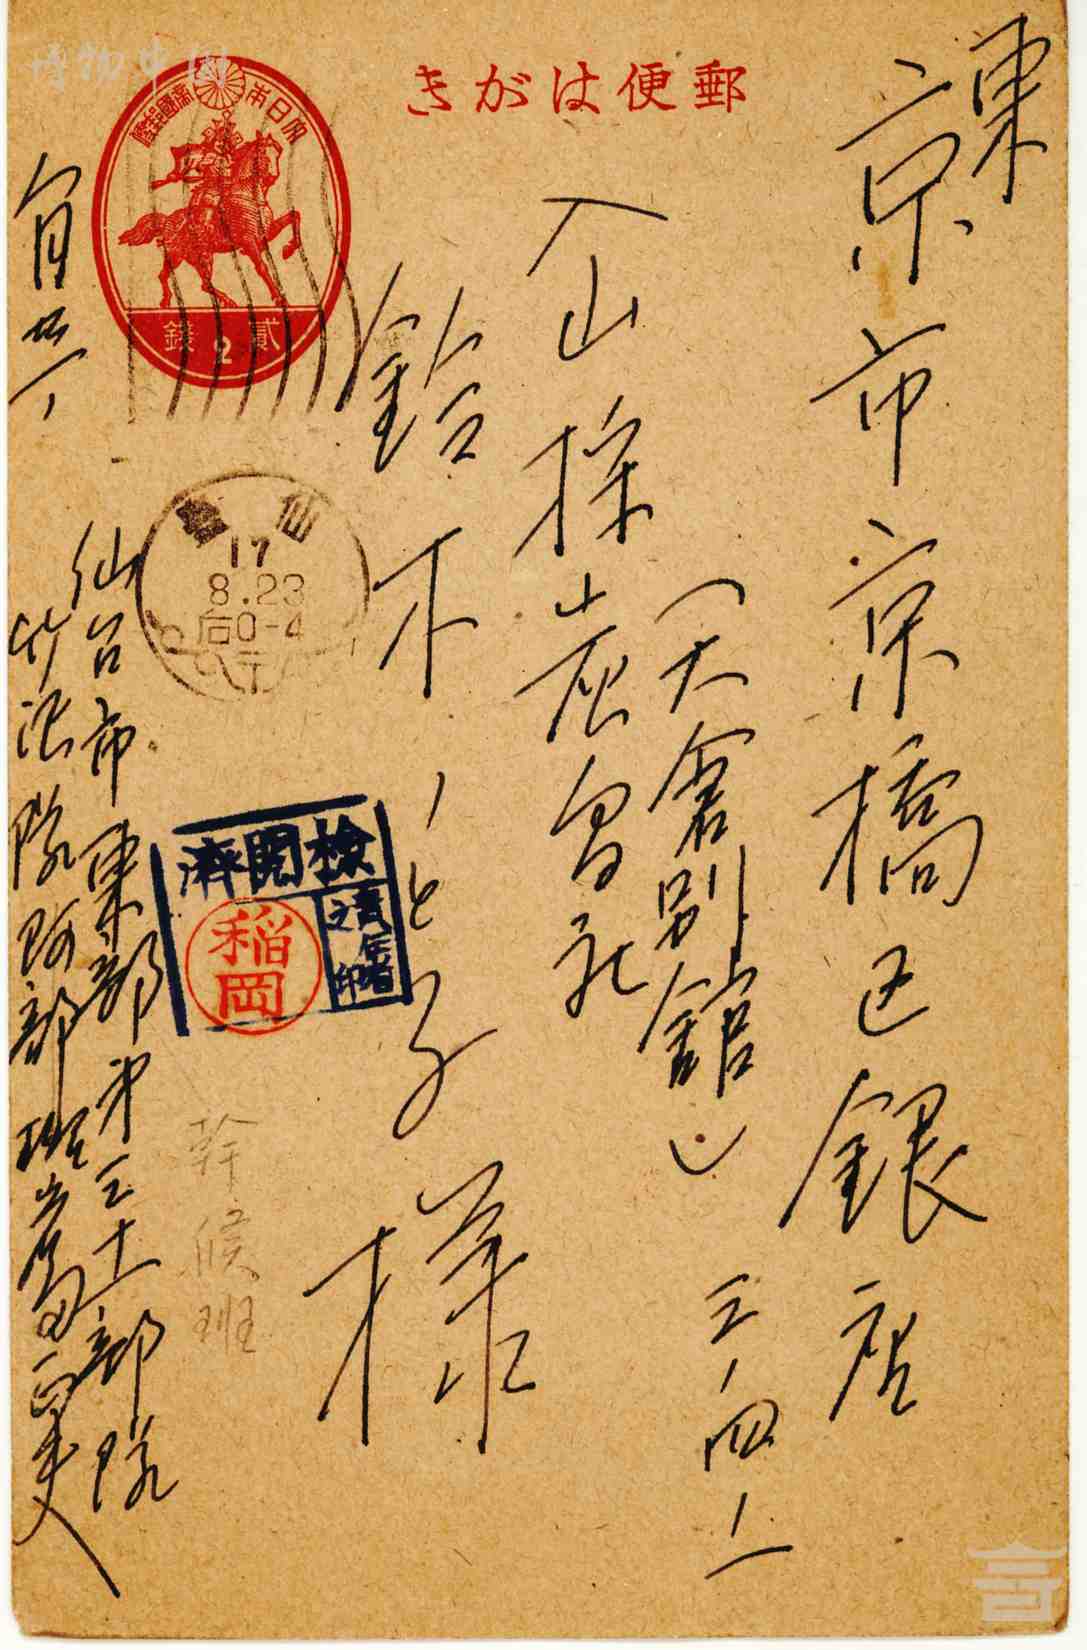 郵便はがき
大日本帝國郵便
貳錢
2
東京市京橋区銀座
三ノ四ノ一
(大倉別館)
入山採炭会社
鈴木ノと子様
仙臺
17
8.23
后0-4
檢閲濟
責任者之印
稲岡
幹候班
仙台市東部第三十二部隊
隊阿部班
八月廿一
博物中国